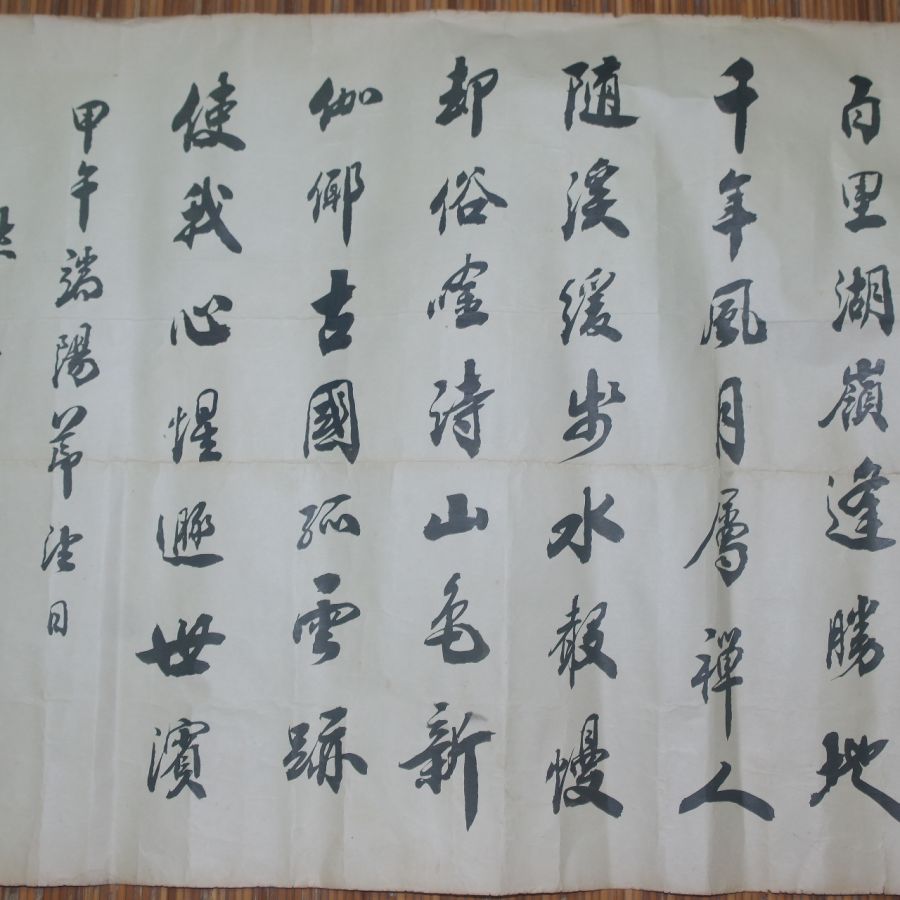 百里湖嶺逢勝地
千年風月屬禪人
隨溪緩步水慢
却俗唫詩山色新
伽倻古國孤雲跡
使我心惺遯世濱
甲午端陽節日